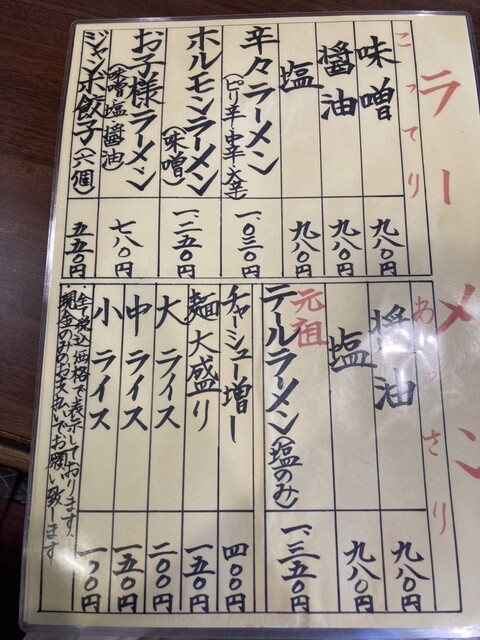 ラーメン
こってり
味噌 九八〇円
醤油 九八〇円
塩 九八〇円
辛々ラーメン(ピリ辛・中辛・大辛) 一、〇三〇円
ホルモンラーメン(味噌) 一、二五〇円
お子様ラーメン(味噌・塩・醤油) 七八〇円
ジャンボ餃子(六個) 五五〇円
あっさり
醤油 九八〇円
塩 九八〇円
元祖
テールラーメン(塩のみ) 一、三五〇円
チャーシュー増し 四〇〇円
麺大盛り 一五〇円
大ライス 二〇〇円
中ライス 一五〇円
小ライス 一〇〇円
全て税込価格で表示しております、
現金のみのお支払いでお願い致します